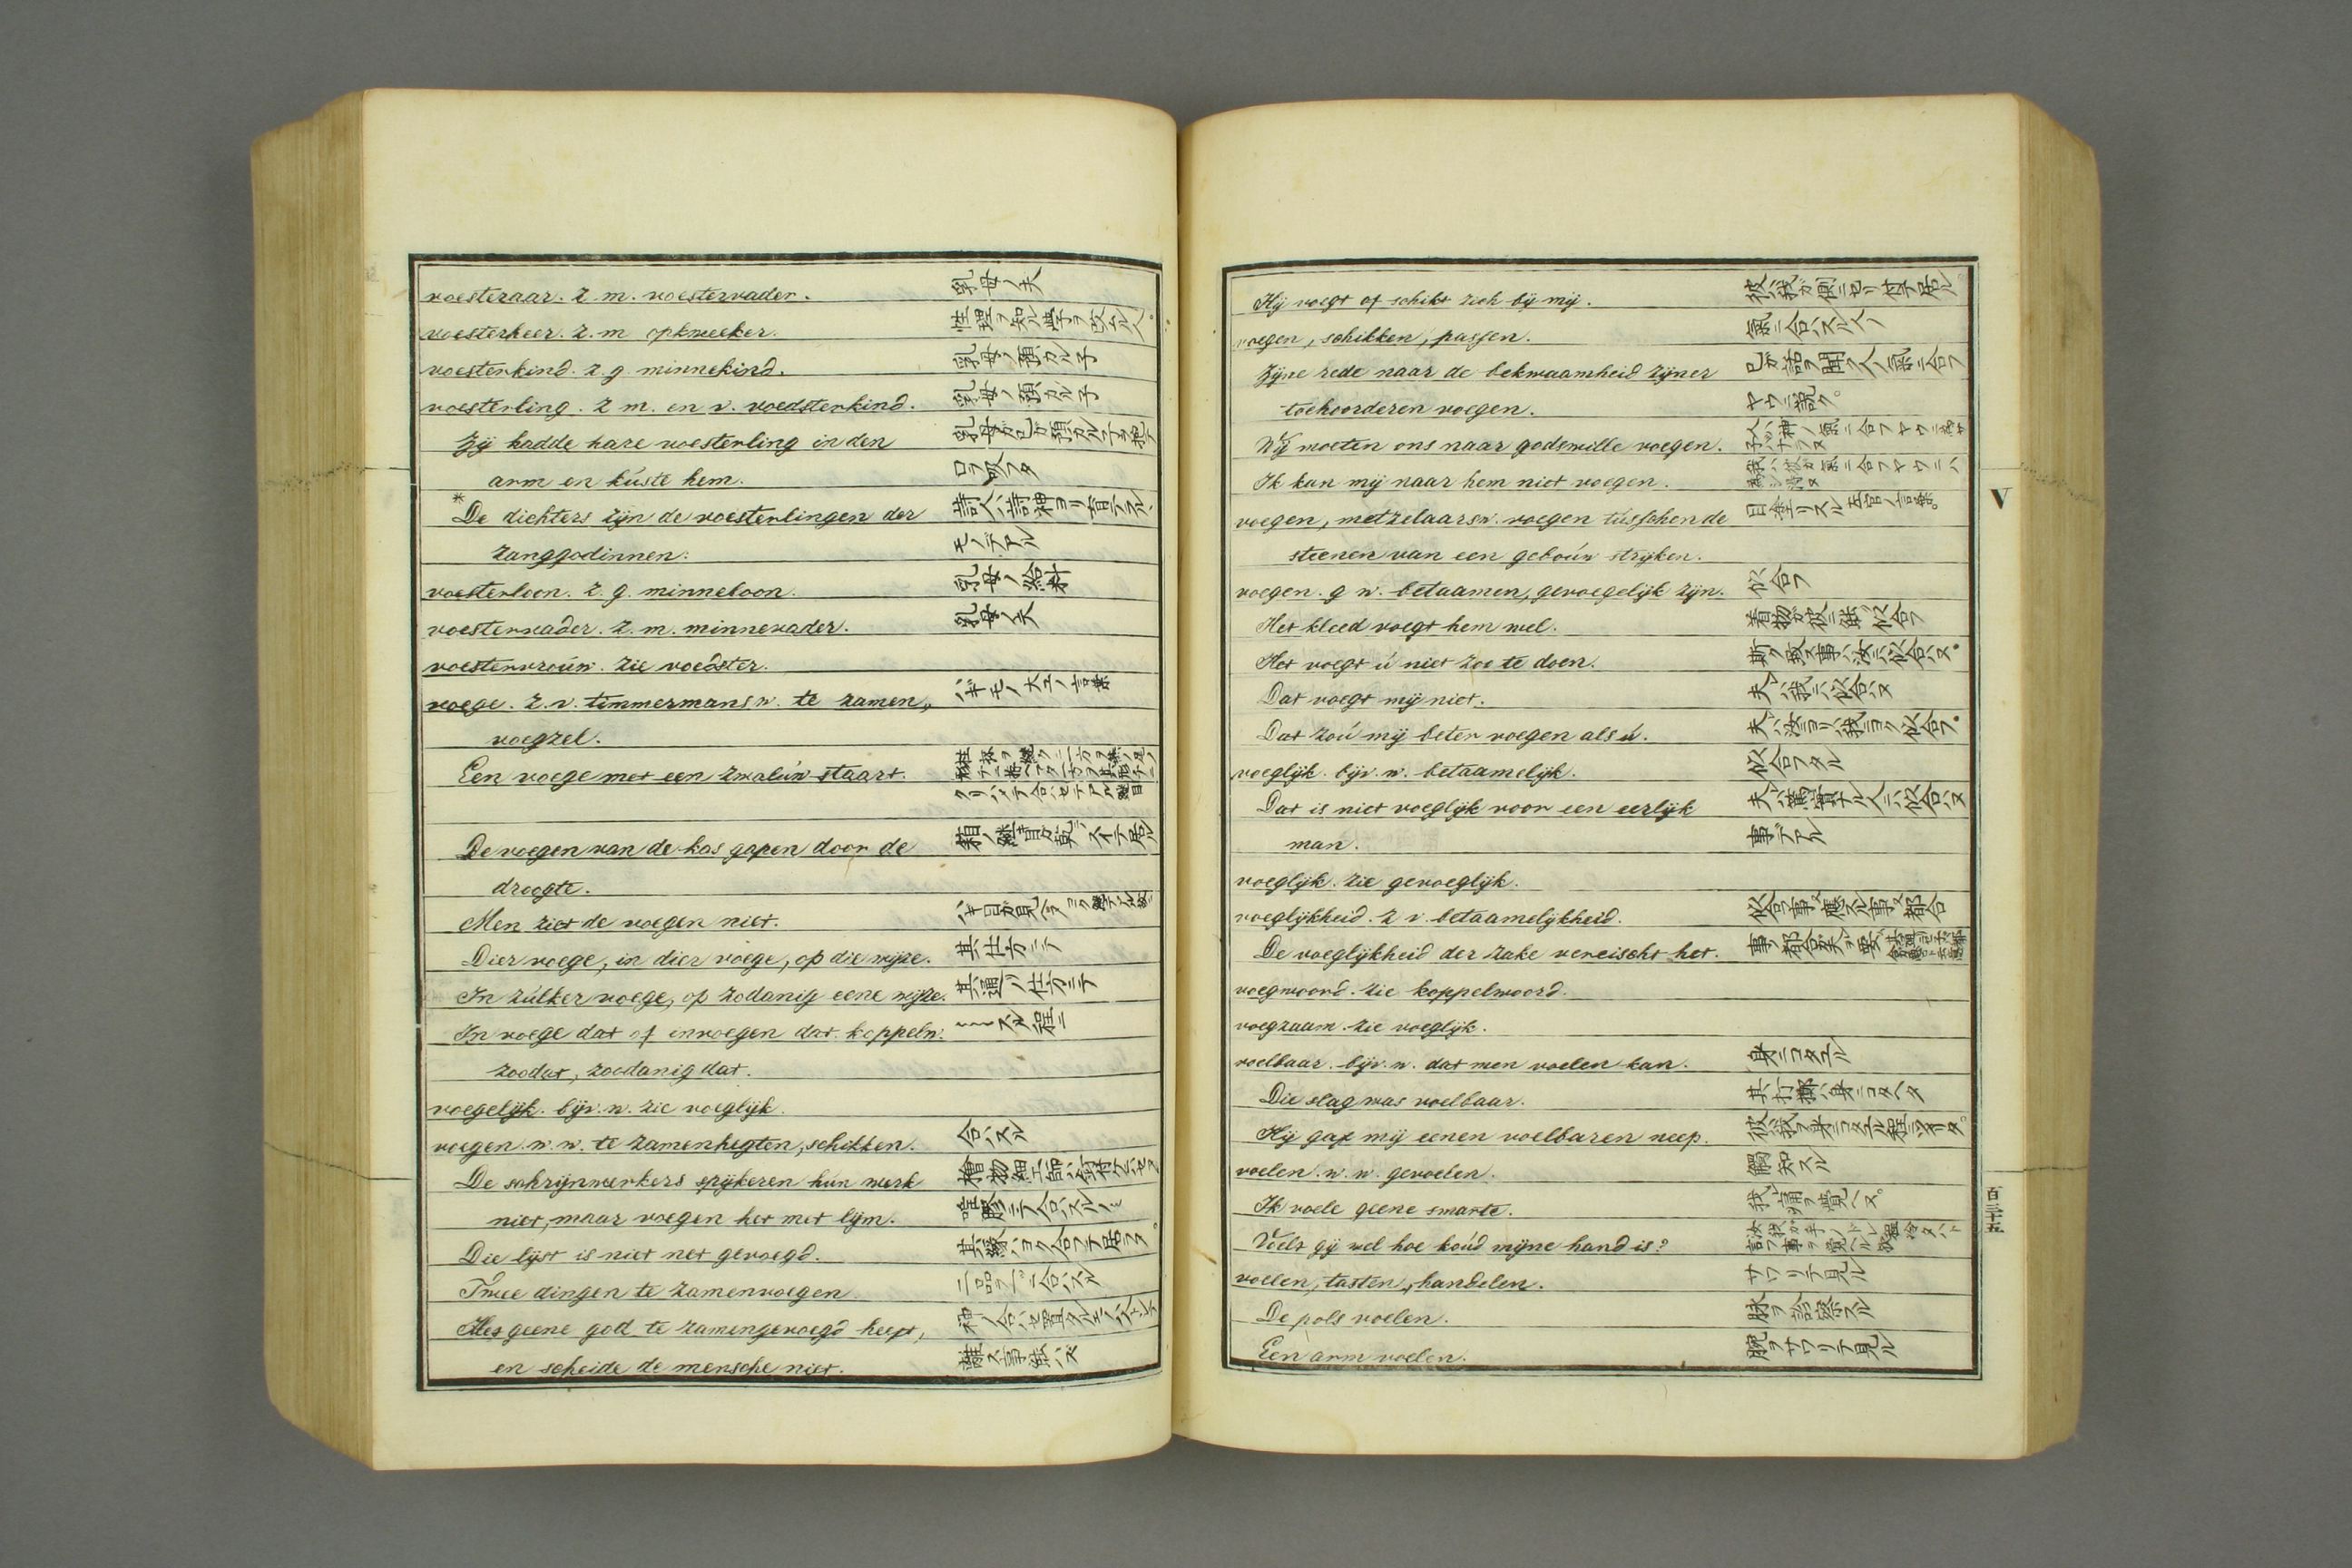 voesteraar. z. m. voestervader. 乳母ノ夫
voesterheer. z. m opkweeker.
voesterkind. z. g. minnekind. 乳母ノ預カル子
voesterling. z m. en v. voedsterkind. 乳母ノ預カル子
Zij hadde hare voesterling in den
arm en kúste hem. 口ヲ吸フタ
*De dichters zijn de voesterlingen der
zanggodinnen. モノデアル
voesterloon. z. g. minneloon. 乳母ノ給料
voestervader. z. m. minnevader. 乳母ノ夫
voestervroúw. zie voedster.
voege. z. v. timmermans w. te zamen„ ハギモノ大工ノ言葉
voegzel.
Een voege met een zwalúw staart.
De voegen van de kas gapen door de
droogte.
Men ziet de voegen niet.
Dier voege, in dier voege, op die wijze. 其仕方ニテ
In zúlker voege, op zodanig eene wijze. 其通リノ仕方ニテ
In voege dat of invoegen dat. koppelw. スル程ニ
zoodat, zoedanig dat.
voegelijk. bijv. w. zie voeglijk.
voegen. w. w. te zamenhegten, schikken. 合ハスル
De schrijnwerkers spijkeren hún werk
niet, maar voegen het met lijm.
Die lijst is niet net gevoegd.
Twee dingen te zamenvoegen 二品ヲ一ニ合ハスル
Hes geene god te zamengevoegd heeft,
en scheide de mensche niet.
Hij voegt of schikt zich bij mij.
voegen, schikken, passen. 氣ニ合ハスル
Zijne rede naar de bekwaamheid zijner 己ガ話ヲ聞ク人ノ氣ニ合フ
toehoorderen voegen. ヤウニ説ク。
Wij moeten ons naar godswille voegen.
Ik kan mij naar hem niet voegen.
voegen, metzelaarsw. voegen tússchen de 目塗リスル
steenen van een geboúw strijken.
voegen. g w. betaamen, gevoegelijk zijn. 似合フ
Het kleed voegt hem wel. 着物ガ彼ニ能ク似合フ
Het voegt ú niet zoo te doen. 斯ク致ス事ハ汝ニハ似合ハヌ。
Dat voegt mij niet. 夫ハ我ニハ似合ハヌ
Dat zoú mij beter voegen als ú. 夫ハ汝ヨリハ我ニヨク似合フ。
voeglijk. bijv. w. betaamelijk. 似合フタル
Dat is niet voeglijk voor een eerlijk 夫ハ篤實ナル人ニハ似合ハヌ
man. 事デアル
voeglijk. zie gevoeglijk.
voeglijkheid. z v. betaamelijkheid.
De voeglijkheid der zake vereischt het.
voegwoord. zie koppelwoord.
voegzaam. zie voeglijk.
voelbaar. bijv. w. dat men voelen kan. 身ニコタユル
Die slag was voelbaar. 其打擲ハ身ニコタヘタ
Hij gaf mij eenen voelbaren neep.
voelen. w. w. gevoelen. 觸知スル
Ik voele geene smarte. 我ハ痛ヲ覺ヘヌ。
Voelt gij wel hoe koúd mijne hand is?
voelen, tasten, handelen. サワリテ見ル
De pols voelen. 脉ヲ診察スル
Een arm voelen. 腕ヲサワリテ見ル
V
百三十五